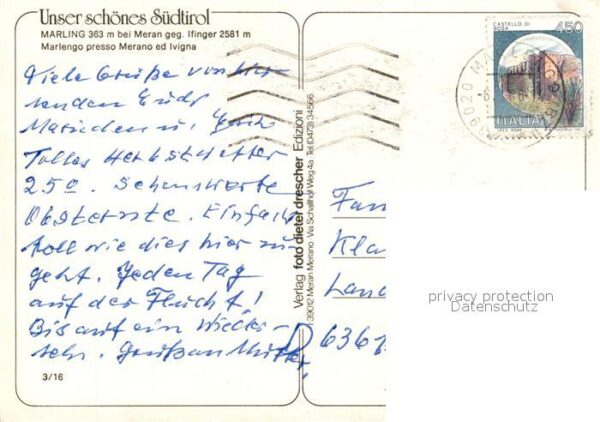 Unser schönes Südtirol
MARLING 363 m bei Meran geg. Ifinger 2581 m
Marlengo presso Merano ed Ivigna
Viele Grüße von
senden
Tolles Herbstwetter
25°. Sehenswerte
Obsternte. Einfach
toll wie dies hier zu
geht. Jeden Tag
auf der Flucht!
Bis auf ein Wieder-
sehn. Gruß an Mutter
3/16
Verlag foto dieter drescher Edizioni
I 39012 Meran Merano · Via Schaffhof Weg 4a Tel. (0473) 34566
CASTELLO DI
450
ITALIA
39020
Fam
Kla
D 636
privacy protection
Datenschutz